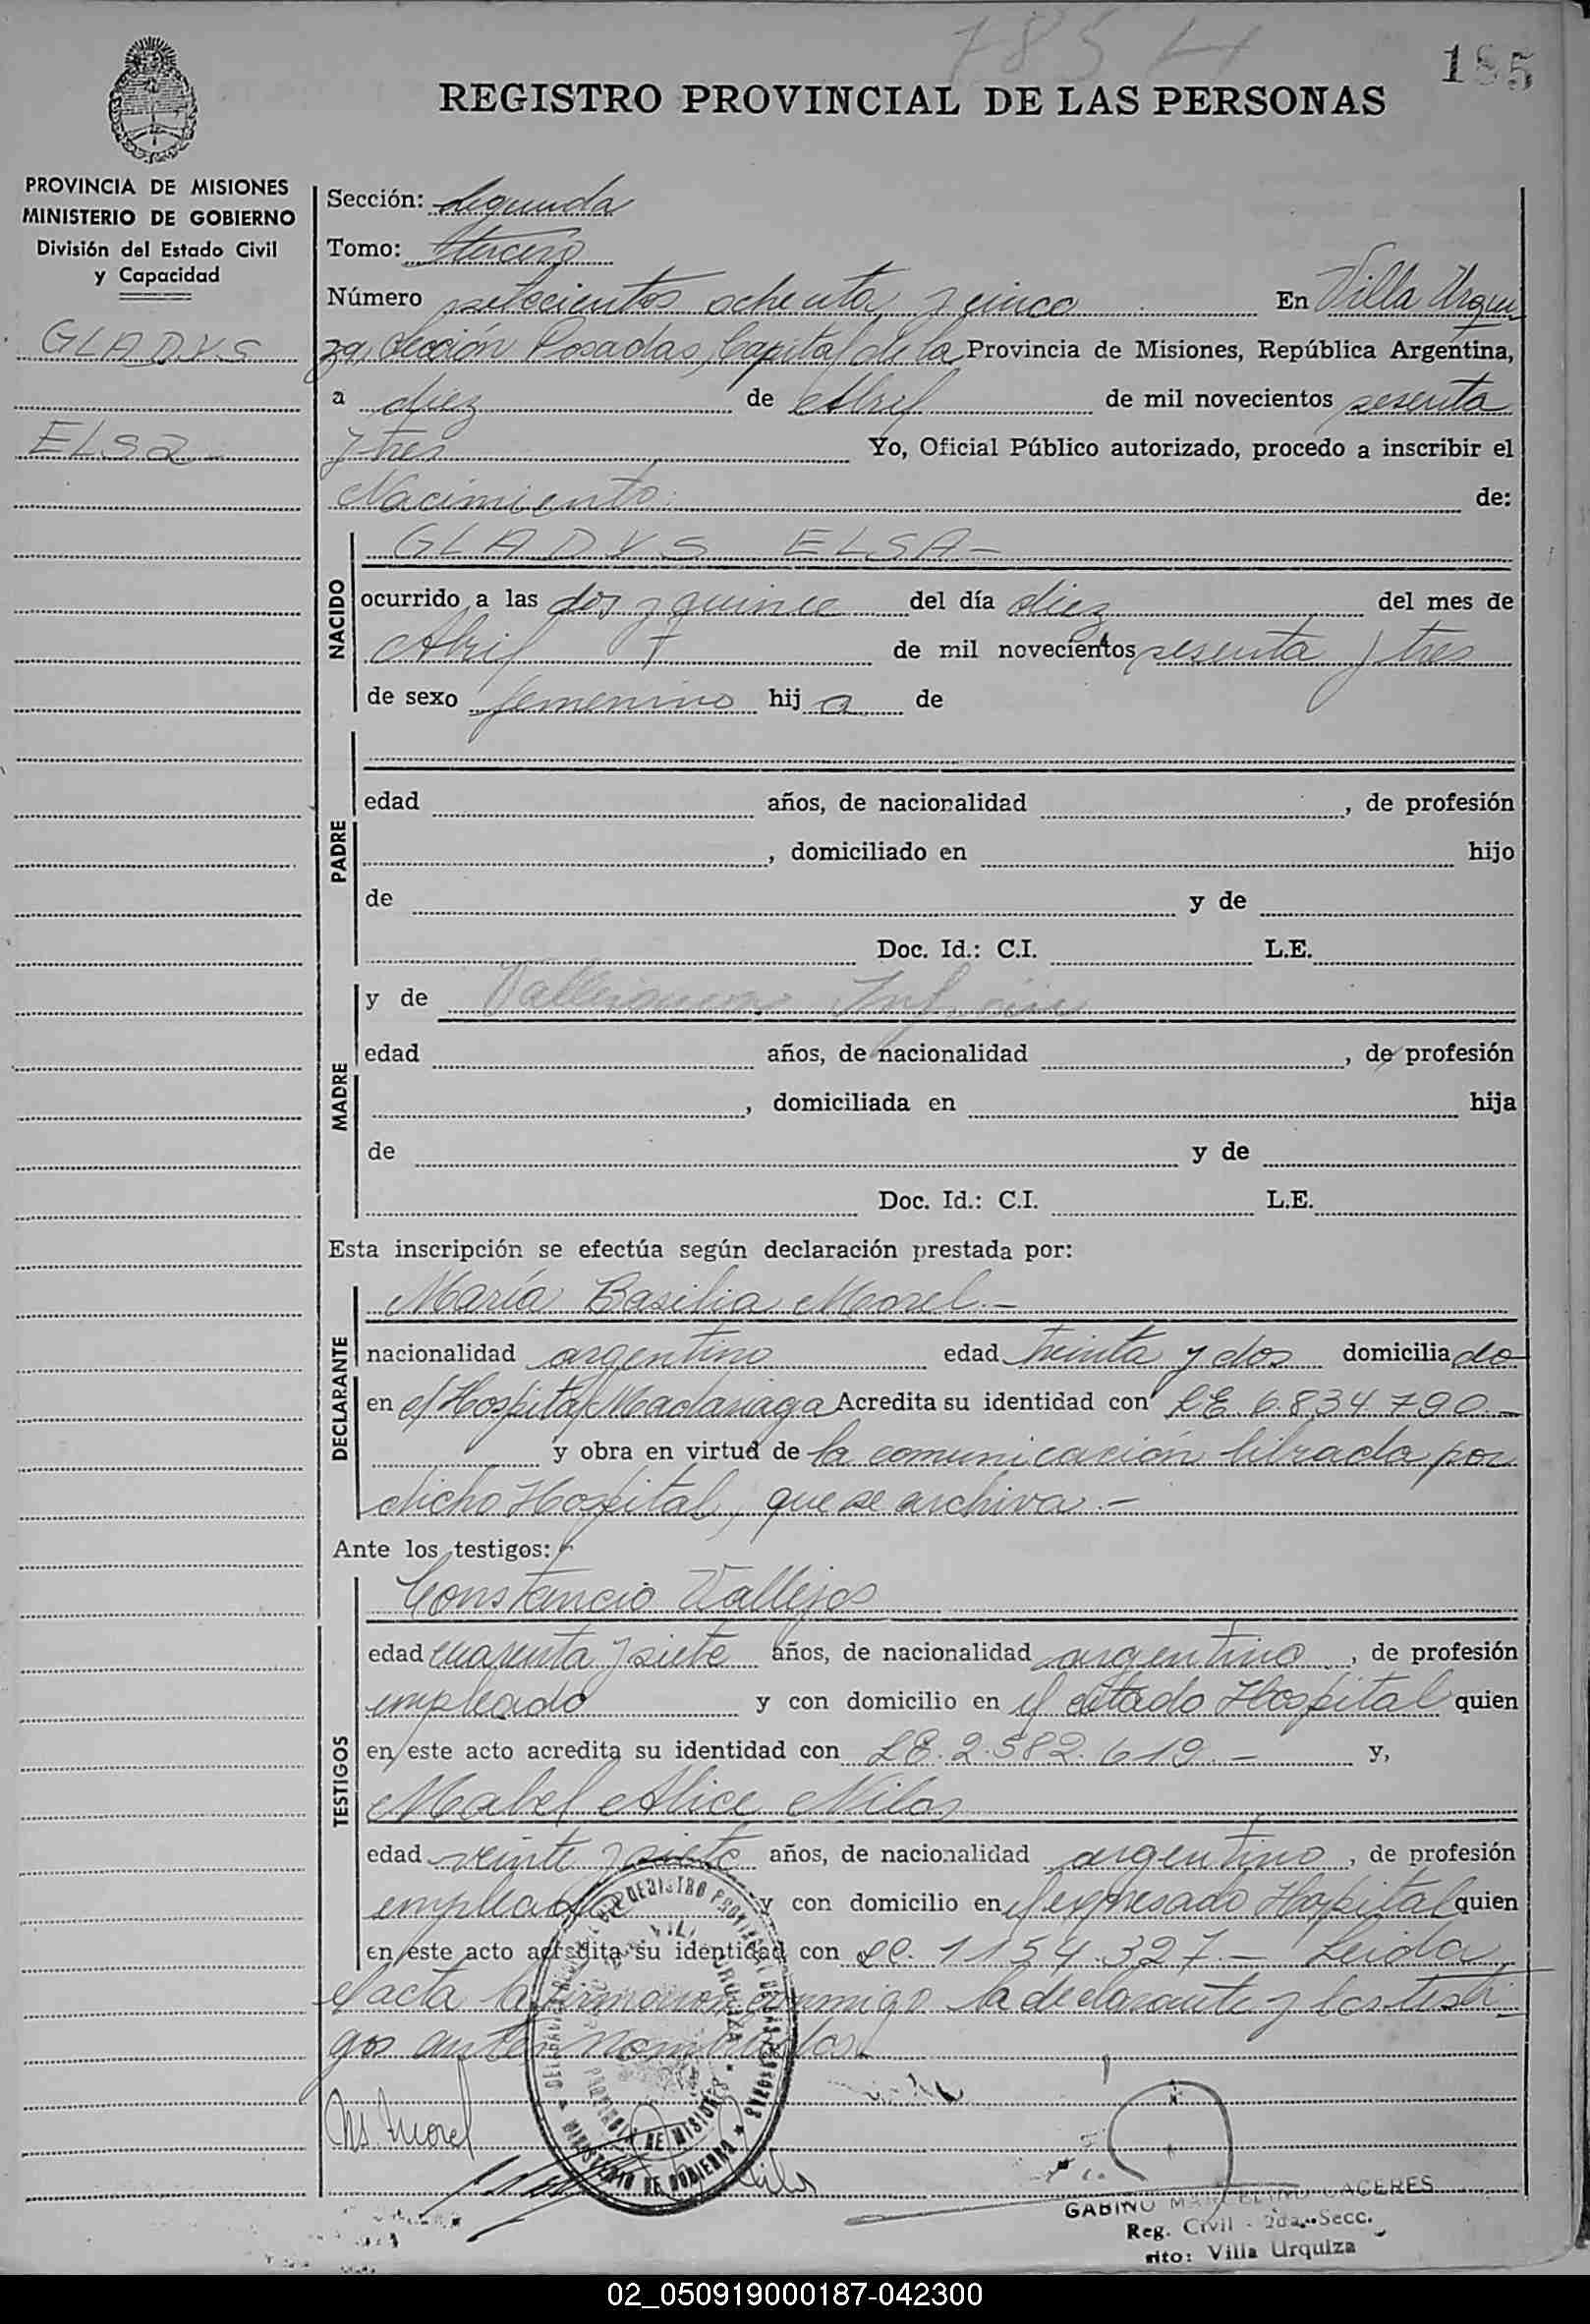 785
185
REGISTRO PROVINCIAL DE LAS PERSONAS
PROVINCIA DE MISIONES
MINISTERIO DE GOBIERNO
División del Estado Civil
y Capacidad
GLADYS
ELSA-
Sección: Segunda
Tomo: tercero
Número setecientos ochenta y cinco En Villa Urqui-
za, Sección Posadas, Capital de la Provincia de Misiones, República Argentina,
a diez de Abril de mil novecientos sesenta
y tres Yo, Oficial Público autorizado, procedo a inscribir el
Nacimiento de:
NACIDO
GLADYS ELSA-
ocurrido a las dos y quince del día diez del mes de
Abril de mil novecientos sesenta y tres
de sexo femenino hij a de
PADRE
edad años, de nacionalidad , de profesión
, domiciliado en hijo
de y de
Doc. Id.: C.I. L.E.
MADRE
y de
edad años, de nacionalidad , de profesión
, domiciliada en hija
de y de
Doc. Id.: C.I. L.E.
Esta inscripción se efectúa según declaración prestada por:
DECLARANTE
María Basilia Morel.-
nacionalidad argentino edad treinta y dos domicilia do
en el Hospital Madariaga Acredita su identidad con LE 6.834.790.-
y obra en virtud de la comunicación librada por
dicho Hospital, que se archiva.-
Ante los testigos:
TESTIGOS
Constancio Vallejos
edad cuarenta y siete años, de nacionalidad argentino, de profesión
empleado y con domicilio en el citado Hospital quien
en este acto acredita su identidad con LE. 2.582.619.- y,
Mabel Alice
edad veinte y siete años, de nacionalidad argentino, de profesión
empleada y con domicilio en el expresado Hospital quien
en este acto acredita su identidad con LC. 1154.327.- Leida
el acta la firmaron conmigo la declarante y los testi-
gos antes nombrados
Ms. Morel
REGISTRO PROVINCIAL DE LAS PERSONAS
VILLA URQUIZA
PROVINCIA DE MISIONES
MINISTERIO DE GOBIERNO
GABINO MARCELINO CACERES
Reg. Civil - 2da. Secc.
rito: Villa Urquiza
02_050919000187-042300